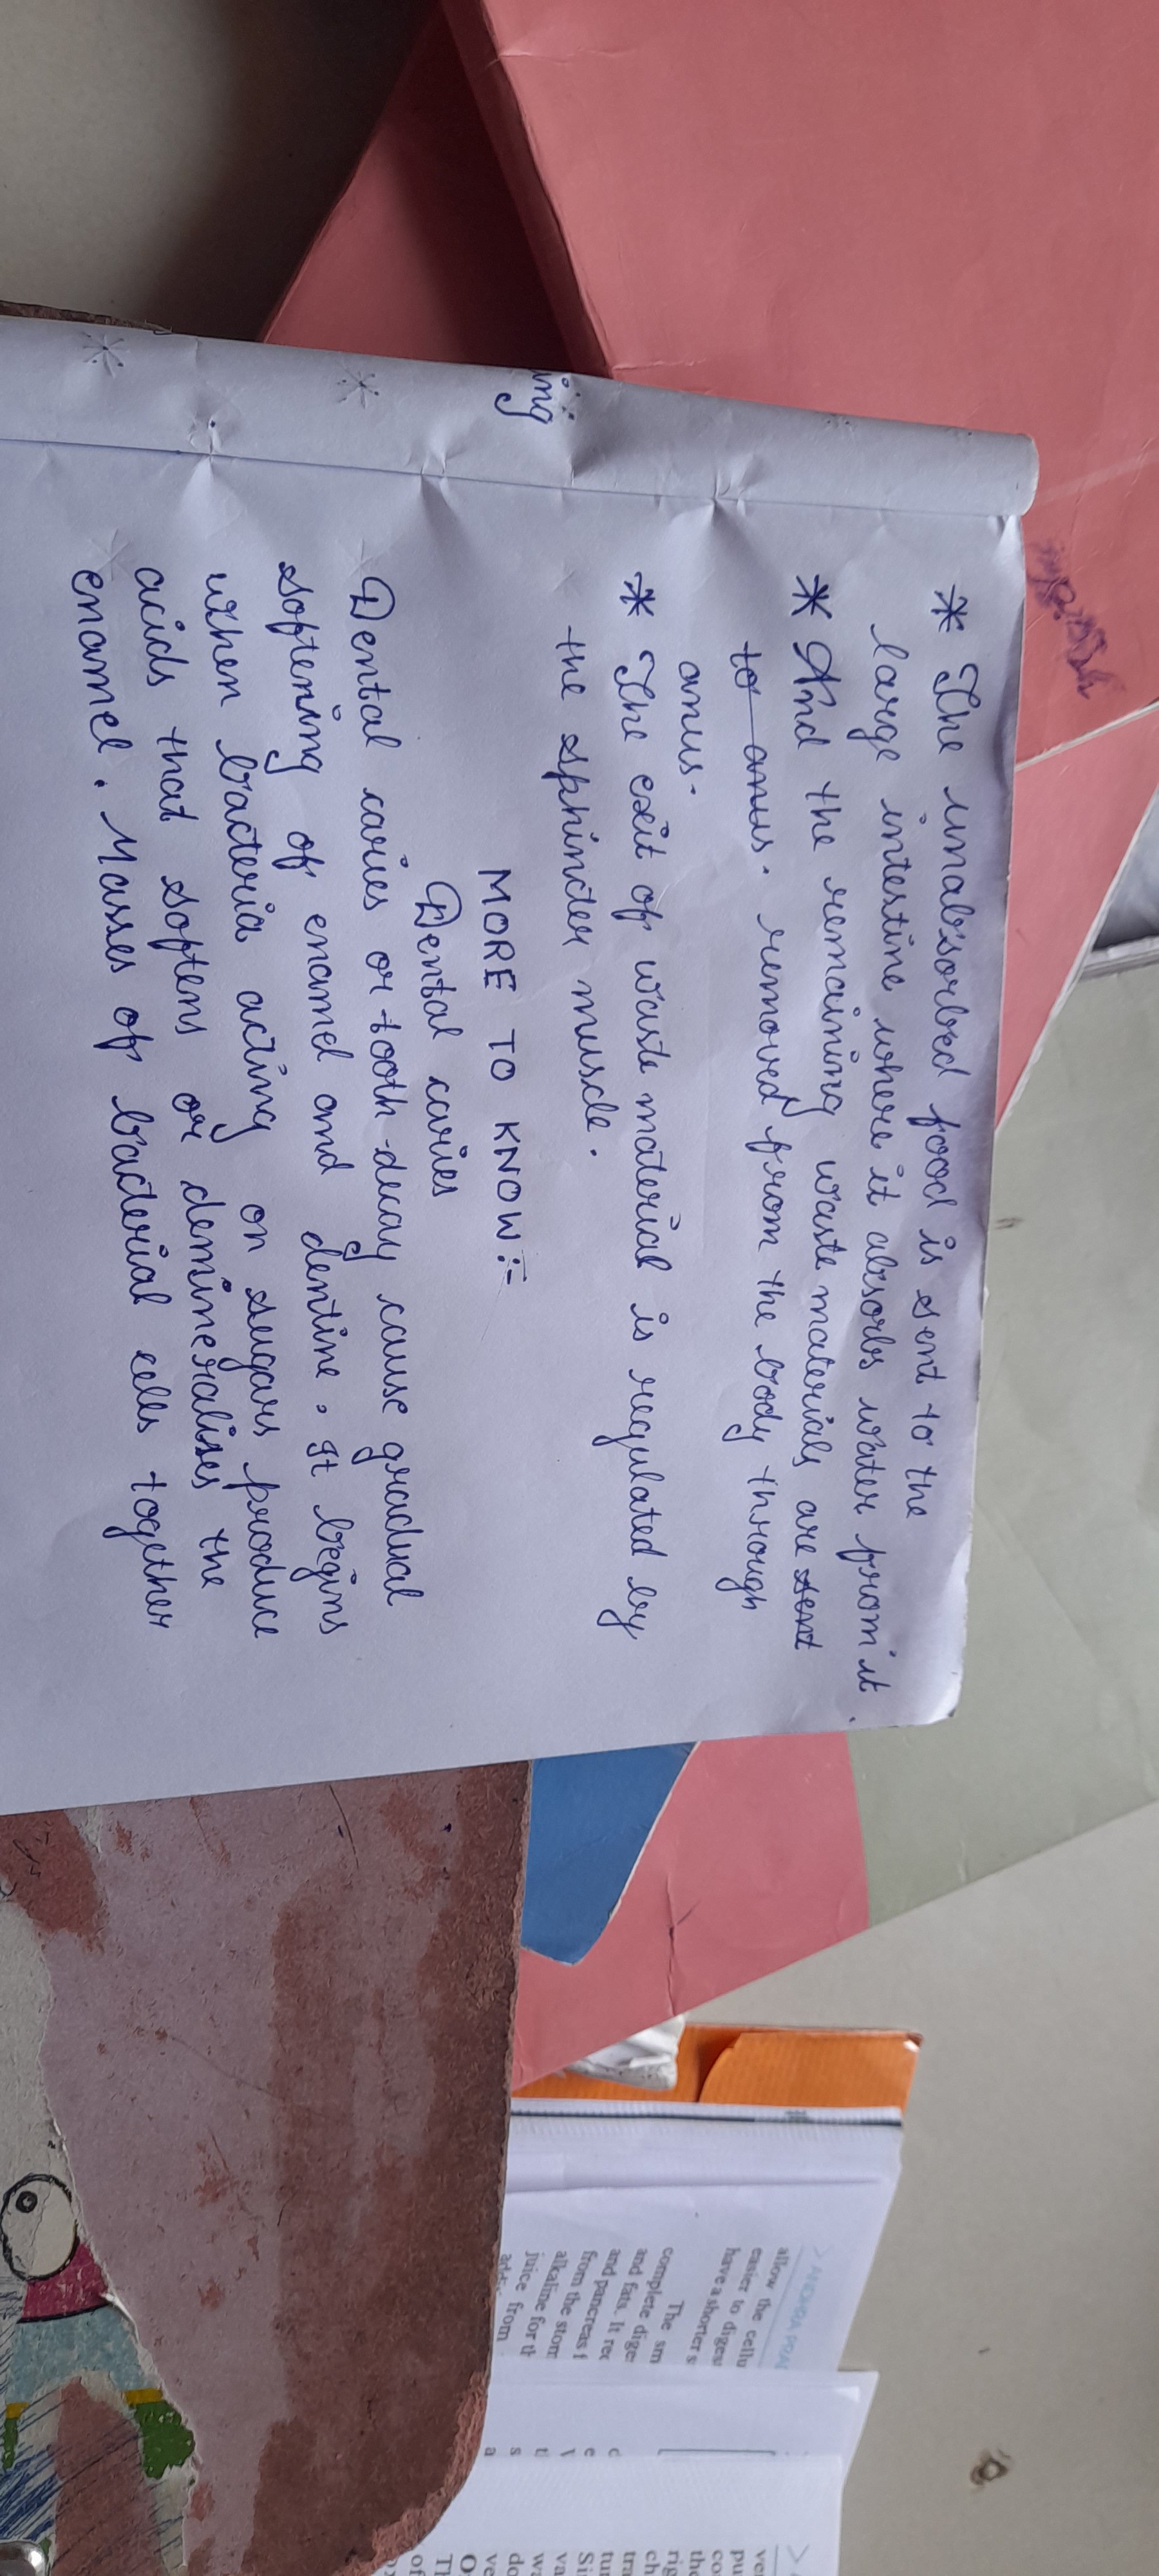 * The unabsorbed food is sent to the
large intestine where it absorbs water from it.
* And the remaining waste materials are sent
to anus. removed from the body through
anus.
* The exit of waste material is regulated by
the sphincter muscle.
MORE TO KNOW:-
Dental caries
Dental caries or tooth-decay cause gradual
softening of enamel and dentine. It begins
when bacteria acting on sugars produce
acids that softens or demineralises the
enamel. Masses of bacterial cells together
ing
allow the cellu
easier to diges
have a shorter s
The sm
complete dige
and fats. It rec
and pancreas f
from the stom
alkaline for th
juice from